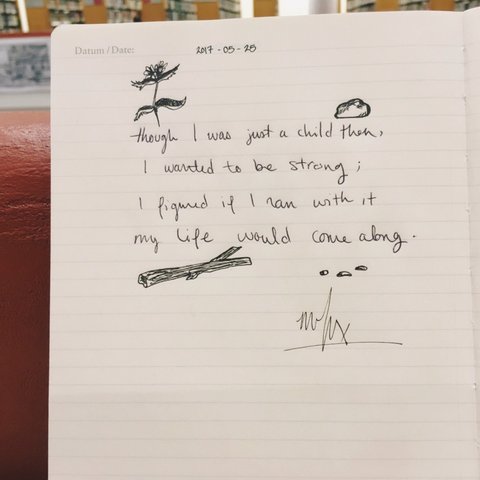 Datum / Date: 2017-05-25
though I was just a child then,
I wanted to be strong;
I figured if I ran with it
my life would come along.